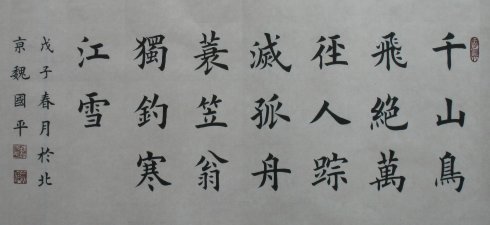 千山鳥
飛絶萬
径人踪
滅孤舟
蓑笠翁
獨釣寒
江雪
戊子春月於北
京魏國平